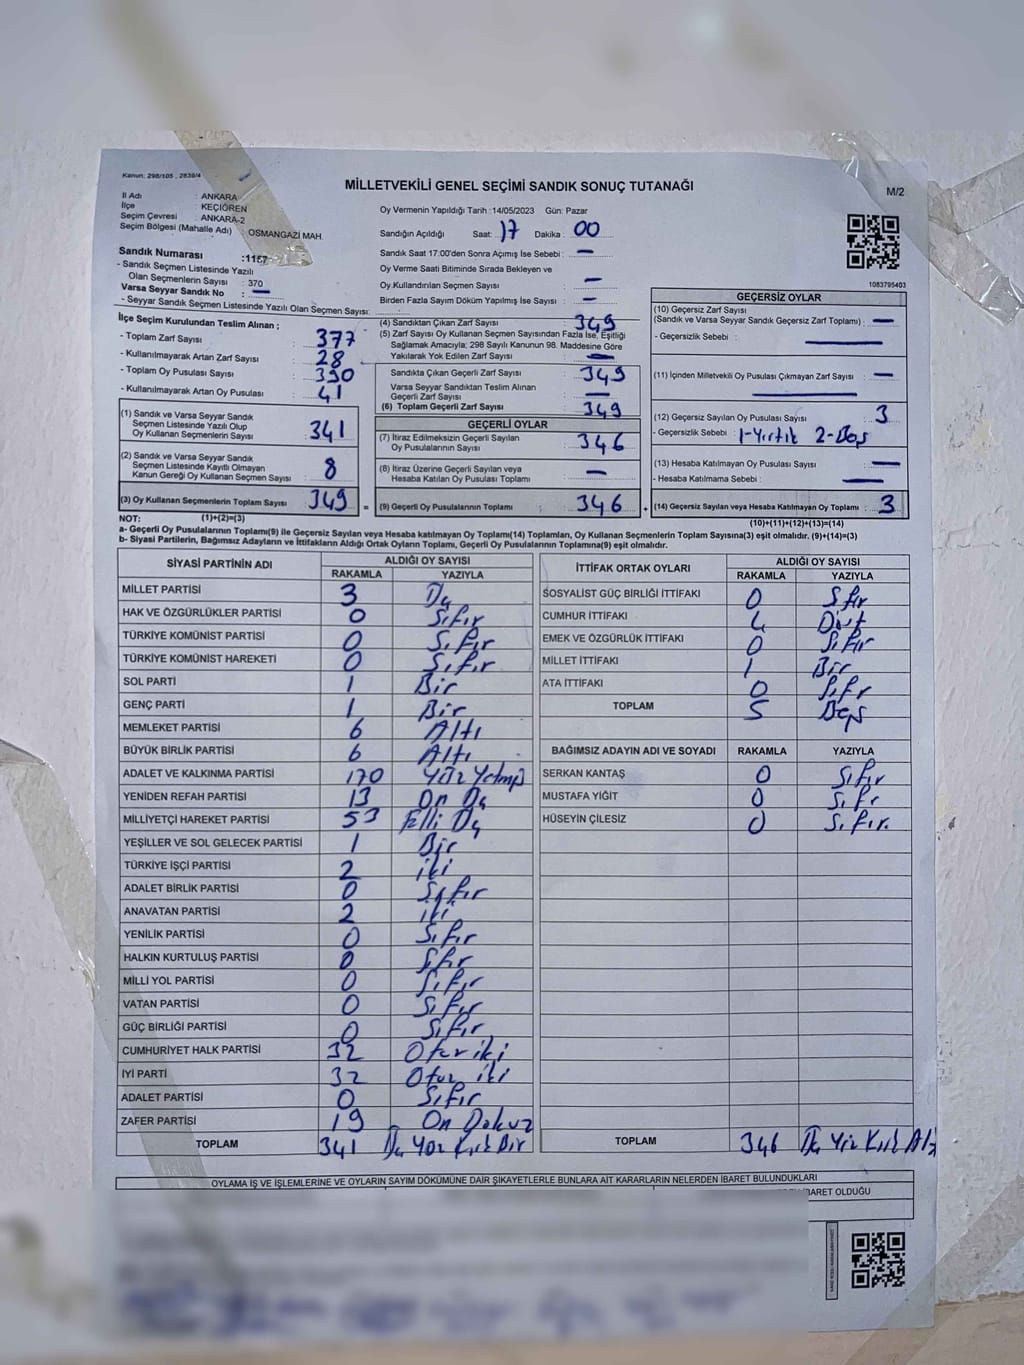 Kanun: 298/105 , 2839/4
MİLLETVEKİLİ GENEL SEÇİMİ SANDIK SONUÇ TUTANAĞI
M/2
İl Adı : ANKARA
İlçe : KEÇİÖREN
Seçim Çevresi : ANKARA-2
Seçim Bölgesi (Mahalle Adı) : OSMANGAZİ MAH.
Sandık Numarası :1157
- Sandık Seçmen Listesinde Yazılı
Olan Seçmenlerin Sayısı : 370
Varsa Seyyar Sandık No : —
- Seyyar Sandık Seçmen Listesinde Yazılı Olan Seçmen Sayısı:
Oy Vermenin Yapıldığı Tarih :14/05/2023 Gün: Pazar
Sandığın Açıldığı Saat: 17 Dakika : 00
Sandık Saat 17:00'den Sonra Açımış İse Sebebi : —
Oy Verme Saati Bitiminde Sırada Bekleyen ve
Oy Kullandırılan Seçmen Sayısı : —
Birden Fazla Sayım Döküm Yapılmış İse Sayısı : —
1083795403
İlçe Seçim Kurulundan Teslim Alınan ;
- Toplam Zarf Sayısı : 377
- Kullanılmayarak Artan Zarf Sayısı : 28
- Toplam Oy Pusulası Sayısı : 390
- Kullanılmayarak Artan Oy Pusulası : 41
(1) Sandık ve Varsa Seyyar Sandık
Seçmen Listesinde Yazılı Olup
Oy Kullanan Seçmenlerin Sayısı : 341
(2) Sandık ve Varsa Seyyar Sandık
Seçmen Listesinde Kayıtlı Olmayan
Kanun Gereği Oy Kullanan Seçmen Sayısı : 8
(3) Oy Kullanan Seçmenlerin Toplam Sayısı : 349
(1)+(2)=(3)
(4) Sandıktan Çıkan Zarf Sayısı : 349
(5) Zarf Sayısı Oy Kullanan Seçmen Sayısından Fazla İse, Eşitliği
Sağlamak Amacıyla; 298 Sayılı Kanunun 98. Maddesine Göre
Yakılarak Yok Edilen Zarf Sayısı : —
Sandıkta Çıkan Geçerli Zarf Sayısı : 349
Varsa Seyyar Sandıktan Teslim Alınan
Geçerli Zarf Sayısı : —
(6) Toplam Geçerli Zarf Sayısı : 349
GEÇERLİ OYLAR
(7) İtiraz Edilmeksizin Geçerli Sayılan
Oy Pusulalarının Sayısı : 346
(8) İtiraz Üzerine Geçerli Sayılan veya
Hesaba Katılan Oy Pusulası Toplamı : —
= (9) Geçerli Oy Pusulalarının Toplamı : 346
GEÇERSİZ OYLAR
(10) Geçersiz Zarf Sayısı
(Sandık ve Varsa Seyyar Sandık Geçersiz Zarf Toplamı) : —
- Geçersizlik Sebebi : —
(11) İçinden Milletvekili Oy Pusulası Çıkmayan Zarf Sayısı : —
(12) Geçersiz Sayılan Oy Pusulası Sayısı : 3
- Geçersizlik Sebebi : 1-Yırtık 2-Boş
(13) Hesaba Katılmayan Oy Pusulası Sayısı : —
- Hesaba Katılmama Sebebi : —
+ (14) Geçersiz Sayılan veya Hesaba Katılmayan Oy Toplamı : 3
(10)+(11)+(12)+(13)=(14)
NOT:
a- Geçerli Oy Pusulalarının Toplamı(9) ile Geçersiz Sayılan veya Hesaba katılmayan Oy Toplamı(14) Toplamları, Oy Kullanan Seçmenlerin Toplam Sayısına(3) eşit olmalıdır. (9)+(14)=(3)
b- Siyasi Partilerin, Bağımsız Adayların ve İttifakların Aldığı Ortak Oyların Toplamı, Geçerli Oy Pusulalarının Toplamına(9) eşit olmalıdır.
SİYASİ PARTİNİN ADI ALDIĞI OY SAYISI
RAKAMLA YAZIYLA
MİLLET PARTİSİ 3 Üç
HAK VE ÖZGÜRLÜKLER PARTİSİ 0 Sıfır
TÜRKİYE KOMÜNİST PARTİSİ 0 Sıfır
TÜRKİYE KOMÜNİST HAREKETİ 0 Sıfır
SOL PARTİ 1 Bir
GENÇ PARTİ 1 Bir
MEMLEKET PARTİSİ 6 Altı
BÜYÜK BİRLİK PARTİSİ 6 Altı
ADALET VE KALKINMA PARTİSİ 170 Yüz Yetmiş
YENİDEN REFAH PARTİSİ 13 On Üç
MİLLİYETÇİ HAREKET PARTİSİ 53 Elli Üç
YEŞİLLER VE SOL GELECEK PARTİSİ 1 Bir
TÜRKİYE İŞÇİ PARTİSİ 2 iki
ADALET BİRLİK PARTİSİ 0 Sıfır
ANAVATAN PARTİSİ 2 iki
YENİLİK PARTİSİ 0 Sıfır
HALKIN KURTULUŞ PARTİSİ 0 Sıfır
MİLLİ YOL PARTİSİ 0 Sıfır
VATAN PARTİSİ 0 Sıfır
GÜÇ BİRLİĞİ PARTİSİ 0 Sıfır
CUMHURİYET HALK PARTİSİ 32 Otuz iki
İYİ PARTİ 32 Otuz iki
ADALET PARTİSİ 0 Sıfır
ZAFER PARTİSİ 19 On Dokuz
TOPLAM 341 Üç Yüz Kırk Bir
İTTİFAK ORTAK OYLARI ALDIĞI OY SAYISI
RAKAMLA YAZIYLA
SOSYALİST GÜÇ BİRLİĞİ İTTİFAKI 0 Sıfır
CUMHUR İTTİFAKI 4 Dört
EMEK VE ÖZGÜRLÜK İTTİFAKI 0 Sıfır
MİLLET İTTİFAKI 1 Bir
ATA İTTİFAKI 0 Sıfır
TOPLAM 5 Beş
BAĞIMSIZ ADAYIN ADI VE SOYADI RAKAMLA YAZIYLA
SERKAN KANTAŞ 0 Sıfır
MUSTAFA YİĞİT 0 Sıfır
HÜSEYİN ÇİLESİZ 0 Sıfır.
TOPLAM 346 Üç Yüz Kırk Altı
OYLAMA İŞ VE İŞLEMLERİNE VE OYLARIN SAYIM DÖKÜMÜNE DAİR ŞİKAYETLERLE BUNLARA AİT KARARLARIN NELERDEN İBARET BULUNDUKLARI
İBARET OLDUĞU